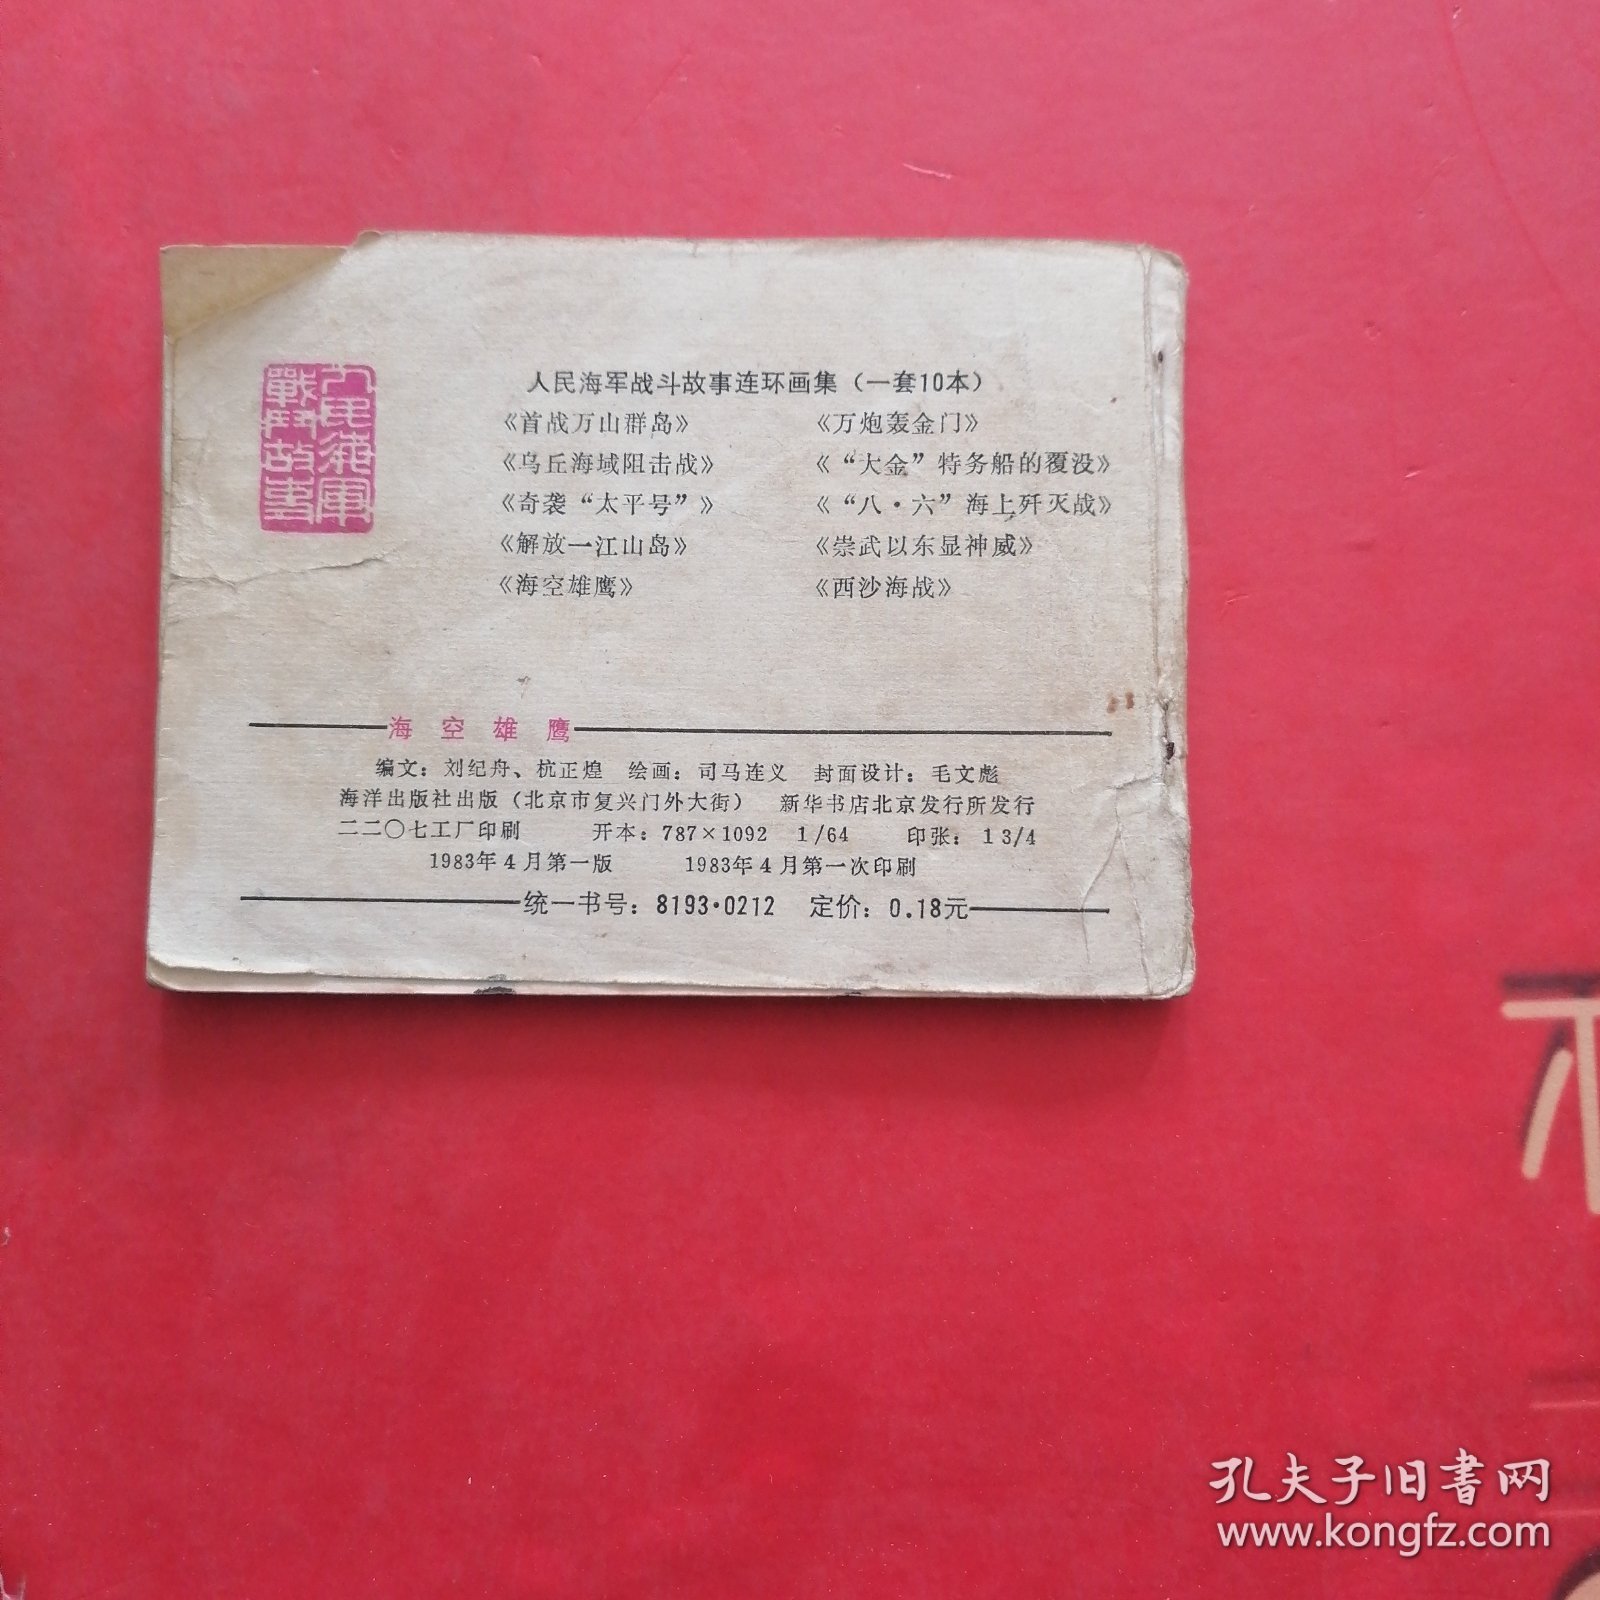 人民海军
戰鬥故事
人民海军战斗故事连环画集（一套10本）
《首战万山群岛》 《万炮轰金门》
《乌丘海域阻击战》 《“大金”特务船的覆没》
《奇袭“太平号”》 《“八·六”海上歼灭战》
《解放一江山岛》 《崇武以东显神威》
《海空雄鹰》 《西沙海战》
海空雄鹰
编文：刘纪舟、杭正煌 绘画：司马连义 封面设计：毛文彪
海洋出版社出版（北京市复兴门外大街） 新华书店北京发行所发行
二二〇七工厂印刷 开本：787×1092 1/64 印张：1 3/4
1983年4月第一版 1983年4月第一次印刷
统一书号：8193·0212 定价：0.18元
孔夫子旧书网
www.kongfz.com